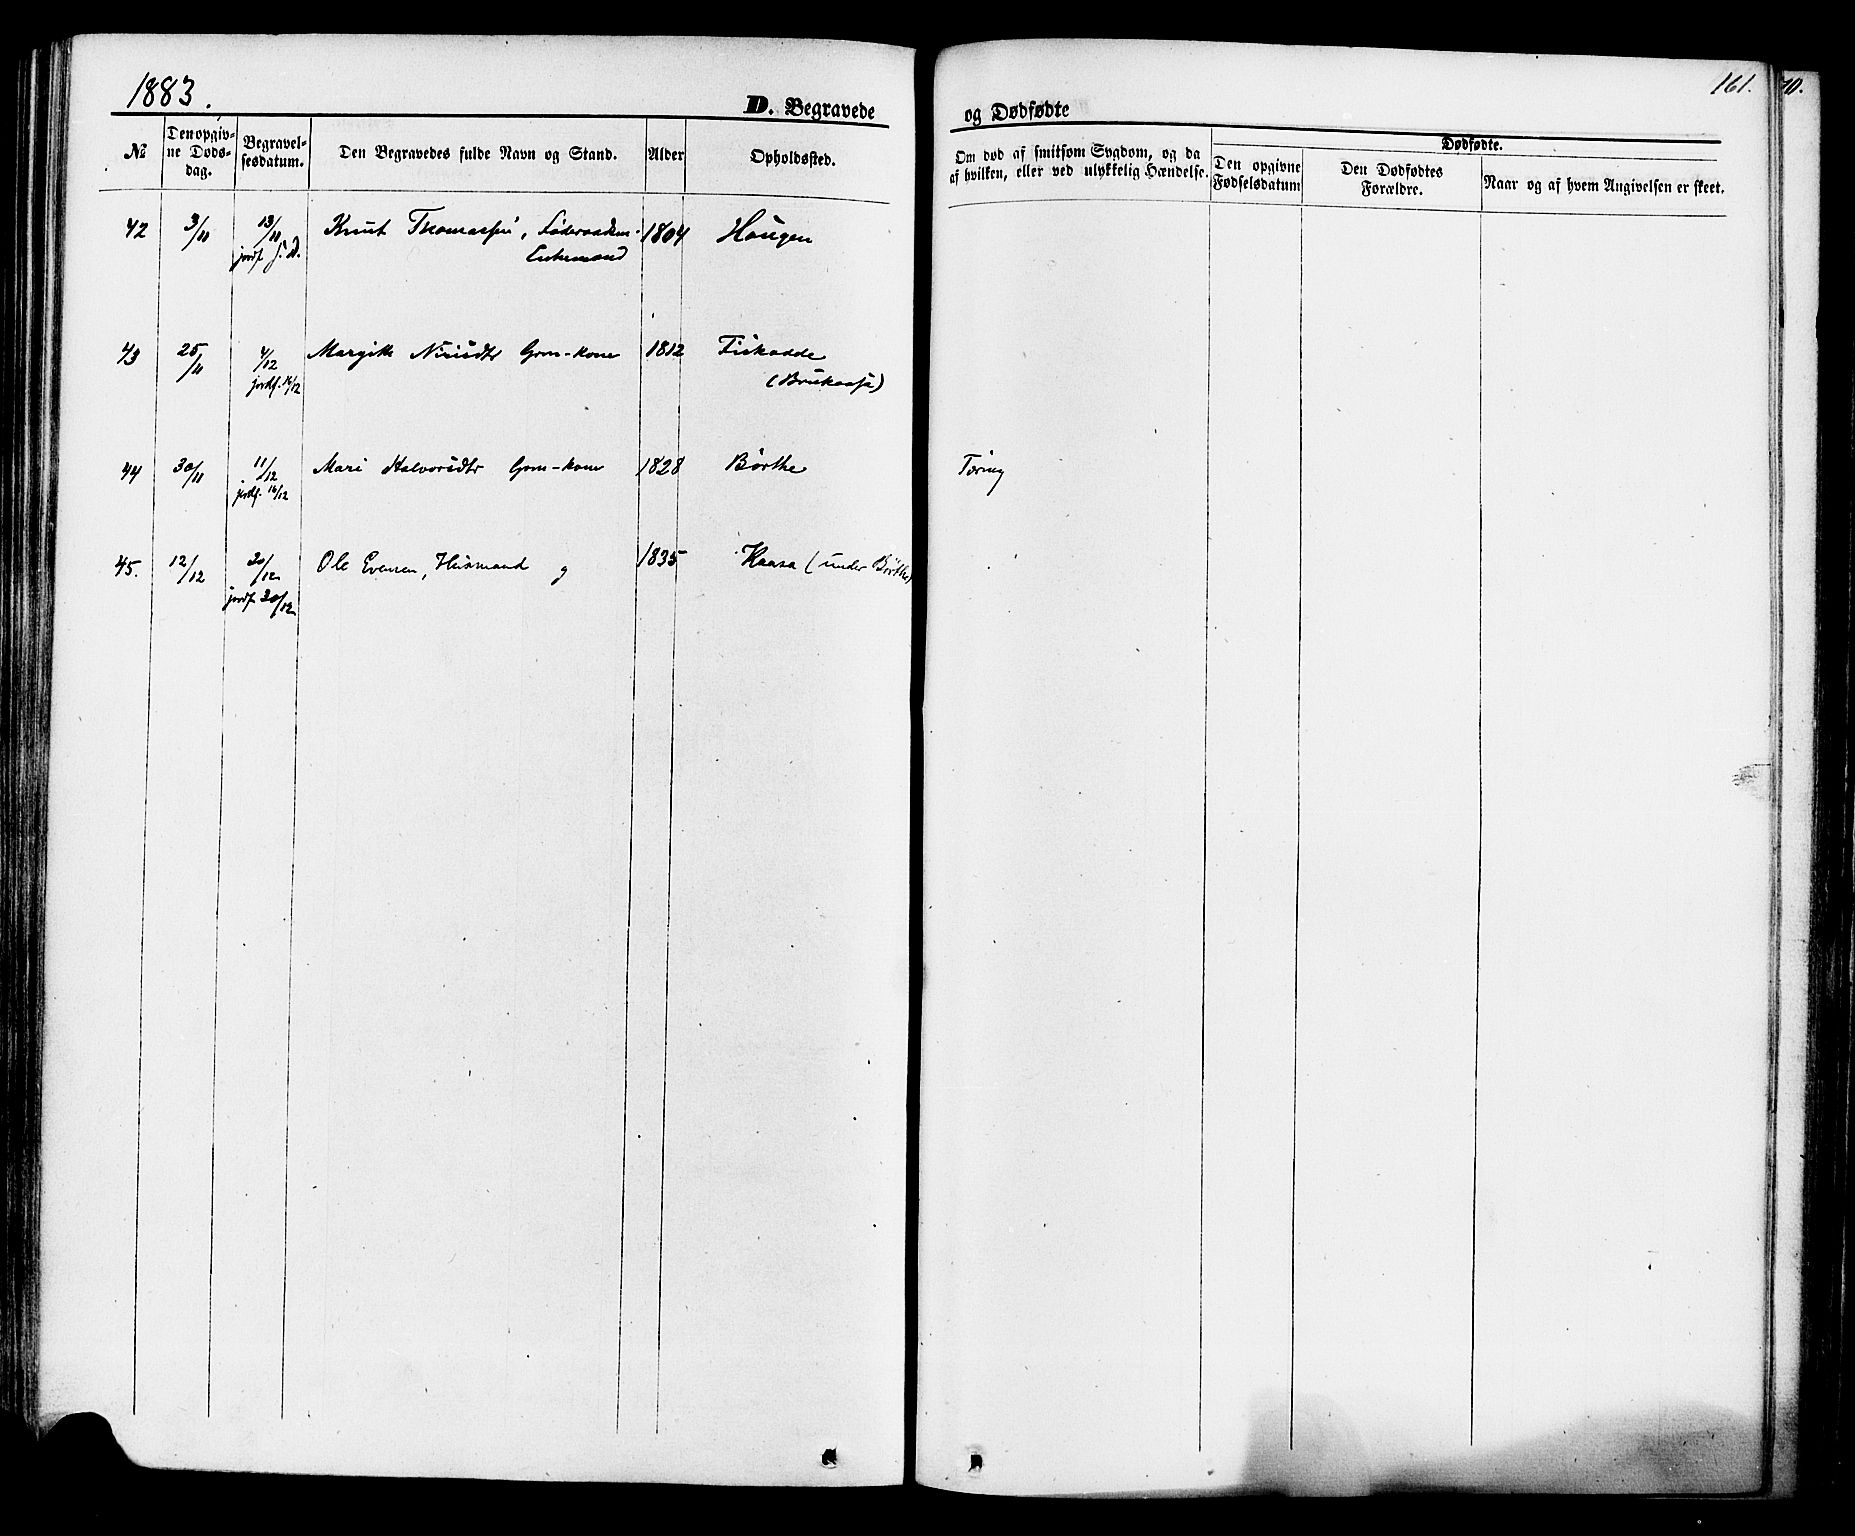 1883.
D. Begravede
og Dødfødte
161.
70.
№
Den opgiv-
ne Døds-
dag.
Begravel-
sesdatum.
Den Begravedes fulde Navn og Stand.
Alder
Opholdssted.
Om død af smitsom Sygdom, og da
af hvilken, eller ved ulykkelig Hændelse.
Dødfødte.
Den opgivne
Fødselsdatum
Den Dødfødtes
Forældre.
Naar og af hvem Angivelsen er skeet.
42 3/11 13/11 Knut Thomassen, 1804 Haugen
jordf. s. D. Enkemand
43 25/11 4/12 Margith Nirisdtr Grm-kone 1812 Fiskodde
jordf. 16/12
44 30/11 11/12 Mari Halvorsdtr Grm-kone 1828 Börthe Tæring
jordf. 16/12
45. 12/12 20/12 Ole Evensen, Husmand g 1835 Haasa (under Börthe)
jordf 30/12